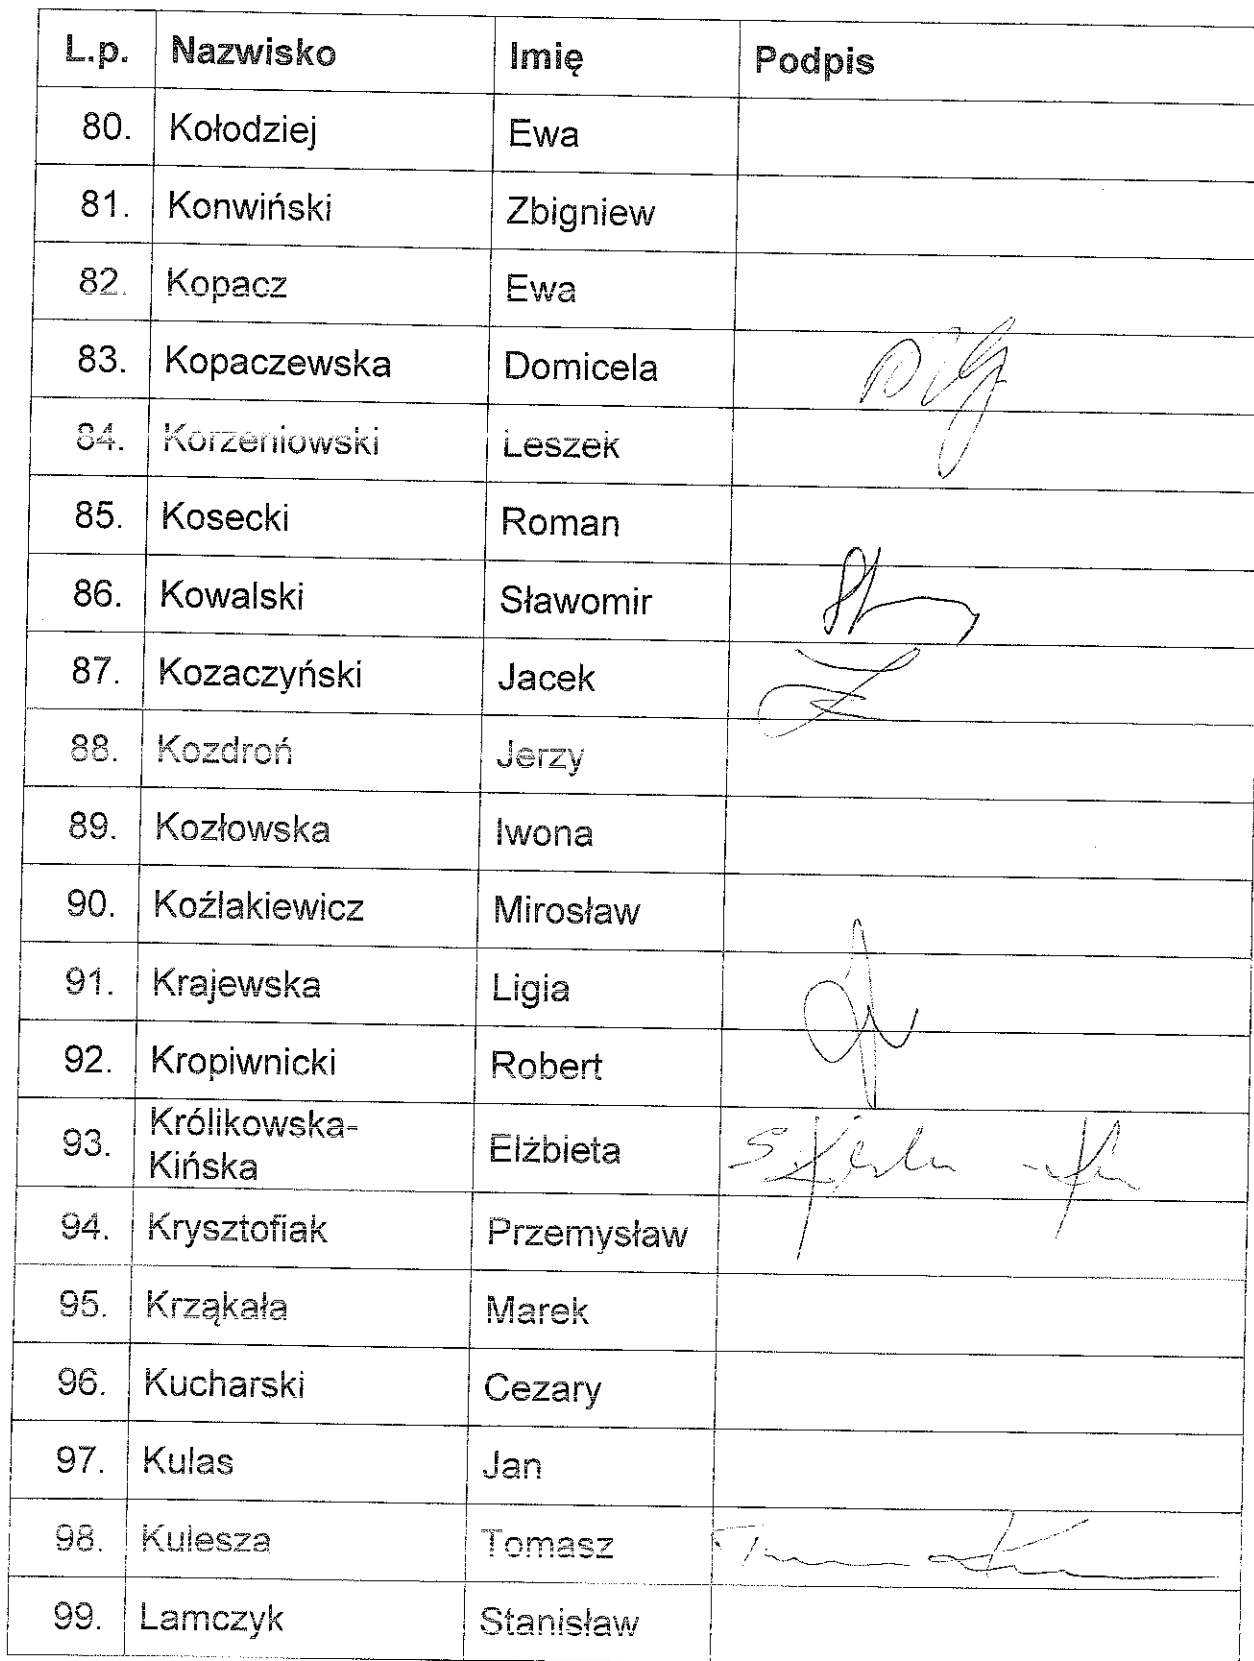 L.p. Nazwisko Imię Podpis
80. Kołodziej Ewa
81. Konwiński Zbigniew
82. Kopacz Ewa
83. Kopaczewska Domicela
84. Korzeniowski Leszek
85. Kosecki Roman
86. Kowalski Sławomir
87. Kozaczyński Jacek
88. Kozdroń Jerzy
89. Kozłowska Iwona
90. Koźlakiewicz Mirosław
91. Krajewska Ligia
92. Kropiwnicki Robert
93. Królikowska-
Kińska Elżbieta
94. Krysztofiak Przemysław
95. Krząkała Marek
96. Kucharski Cezary
97. Kulas Jan
98. Kulesza Tomasz
99. Lamczyk Stanisław